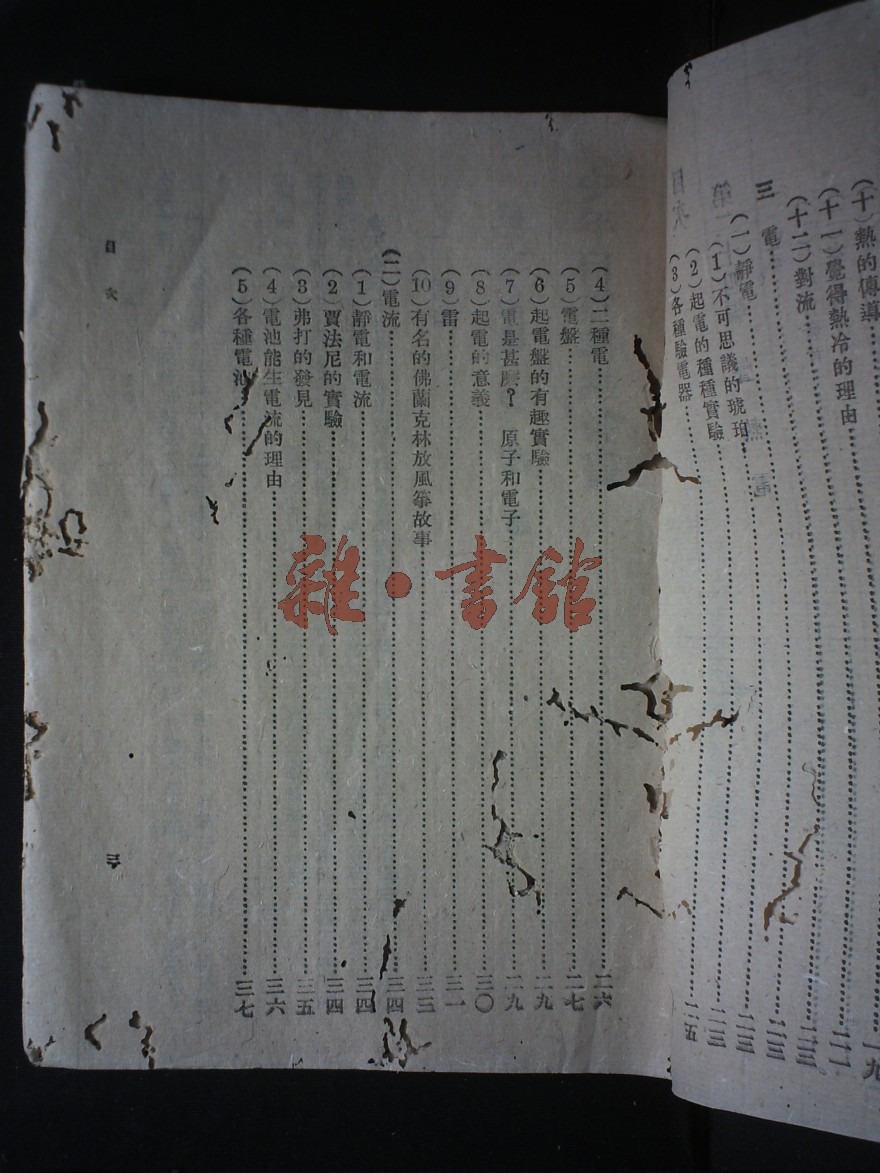 (十)熱的傳導……一九
(十一)覺得熱冷的理由……二一
(十二)對流……二三
三 電……二三
(一)靜電……二三
(1)不可思議的琥珀……二三
(2)起電的種種實驗……二五
(3)各種驗電器
目次
(4)二種電……二六
(5)電盤……二七
(6)起電盤的有趣實驗……二九
(7)電是甚麼? 原子和電子……二九
(8)起電的意義……三〇
(9)雷……三一
(10)有名的佛蘭克林放風箏故事……三三
(二)電流……三四
(1)靜電和電流……三四
(2)賈法尼的實驗……三四
(3)弗打的發見……三五
(4)電池能生電流的理由……三六
(5)各種電池……三七
目次
雜·書館